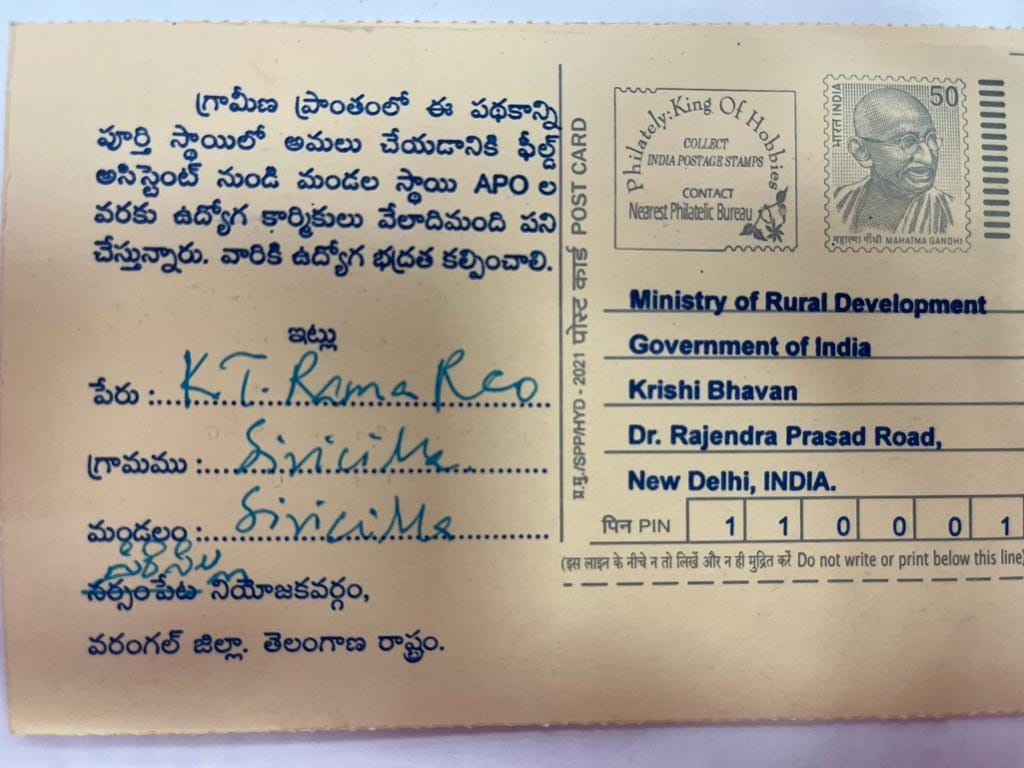 గ్రామీణ ప్రాంతంలో ఈ పథకాన్ని
పూర్తి స్థాయిలో అమలు చేయడానికి ఫీల్డ్
అసిస్టెంట్ నుండి మండల స్థాయి APO ల
వరకు ఉద్యోగ కార్మికులు వేలాదిమంది పని
చేస్తున్నారు. వారికి ఉద్యోగ భద్రత కల్పించాలి.
ఇట్లు
పేరు :... K.T. Rama Rao
గ్రామము :... Siricilla
మండలం :... Siricilla
సిరిసిల్ల
నర్సంపేట నియోజకవర్గం,
వరంగల్ జిల్లా. తెలంగాణ రాష్ట్రం.
प्र.मु./SPP/HYD - 2021 पोस्ट कार्ड POST CARD
Philately: King Of Hobbies
COLLECT
INDIA POSTAGE STAMPS
CONTACT
Nearest Philatelic Bureau
भारत INDIA
50
महात्मा गाँधी MAHATMA GANDHI
Ministry of Rural Development
Government of India
Krishi Bhavan
Dr. Rajendra Prasad Road,
New Delhi, INDIA.
पिन PIN 1 1 0 0 0 1
(इस लाइन के नीचे न तो लिखें और न ही मुद्रित करें Do not write or print below this line